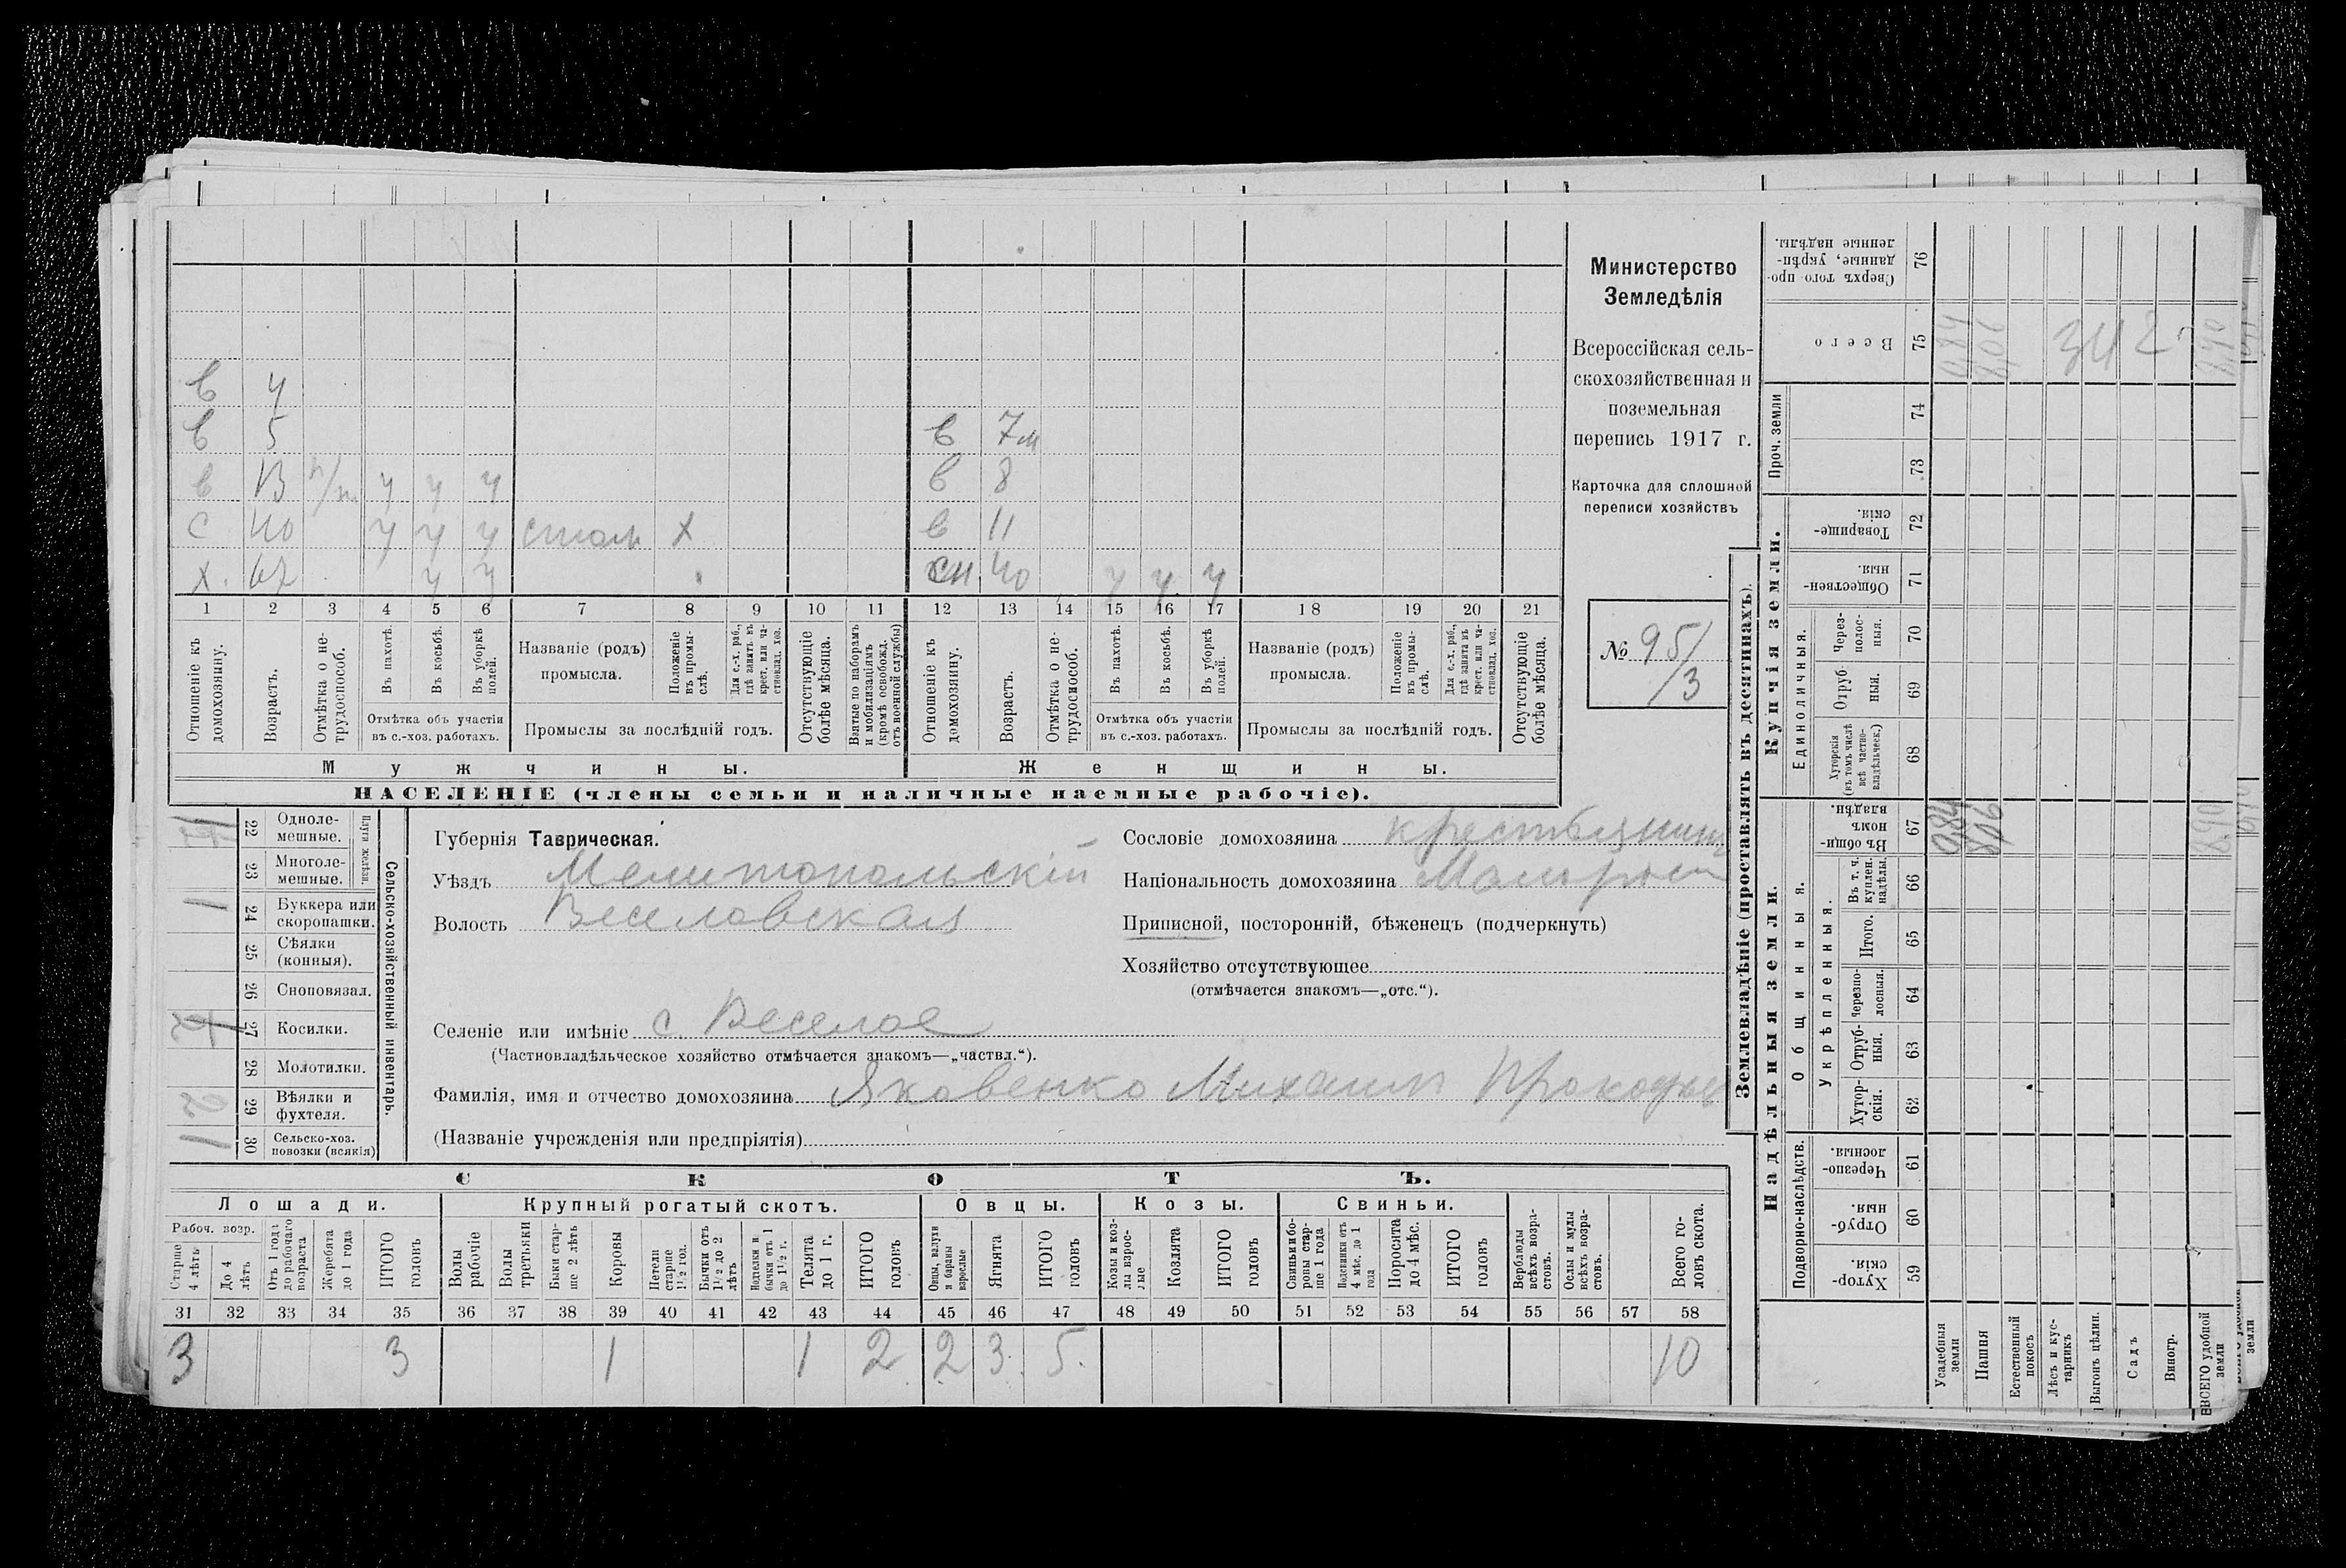 в 4
в 5
в 7м
в 13 н/п. у у у
в 8
с 40 у у у столяр х
в 11
х. 67 у у
сн. 40 у у у
1 2 3 4 5 6 7 8 9 10 11 12 13 14 15 16 17 18 19 20 21
Отношеніе къ домохозяину.
Возрастъ.
Отмѣтка о нетрудоспособ.
Въ пахотѣ.
Въ косьбѣ.
Въ уборкѣ полей.
Отмѣтка объ участіи
въ с.-хоз. работахъ.
Названіе (родъ)
промысла.
Положеніе въ промыслѣ.
Для с.-х. раб., гдѣ занятъ въ крест. или частновлад. хоз.
Промыслы за послѣдній годъ.
Отсутствующіе болѣе мѣсяца.
Взятые по наборамъ и мобилизаціямъ (кромѣ освобожд. отъ военной службы)
Отношеніе къ домохозяину.
Возрастъ.
Отмѣтка о нетрудоспособ.
Въ пахотѣ.
Въ косьбѣ.
Въ уборкѣ полей.
Отмѣтка объ участіи
въ с.-хоз. работахъ.
Названіе (родъ)
промысла.
Положеніе въ промыслѣ.
Для с.-х. раб., гдѣ занята въ крест. или частновлад. хоз.
Промыслы за послѣдній годъ.
Отсутствующіе болѣе мѣсяца.
Мужчины.
Женщины.
НАСЕЛЕНІЕ (члены семьи и наличные наемные рабочіе).
Министерство
Земледѣлія
Всероссійская сель-
скохозяйственная и
поземельная
перепись 1917 г.
Карточка для сплошной
переписи хозяйствъ
№ 951/3
22 Одноле-
мешные.
23 Многоле-
мешные.
Плуги желѣзн.
1 24 Буккера или
скоропашки.
25 Сѣялки
(конныя).
26 Сноповязал.
27 Косилки.
28 Молотилки.
29 Вѣялки и
фухтеля.
1 30 Сельско-хоз.
повозки (всякія)
Сельско-хозяйственный инвентарь.
Губернія Таврическая.
Уѣздъ Мелитопольскій
Волость Веселовская
Сословіе домохозяина крестьянинъ
Національность домохозяина Малорос
Приписной, посторонній, бѣженецъ (подчеркнуть)
Хозяйство отсутствующее
(отмѣчается знакомъ—„отс.“).
Селеніе или имѣніе с. Веселое
(Частновладѣльческое хозяйство отмѣчается знакомъ—„частвл.“).
Фамилія, имя и отчество домохозяина Яковенко Михаилъ Прокофьев
(Названіе учрежденія или предпріятія)
СКОТЪ.
Лошади.
Крупный рогатый скотъ.
Овцы.
Козы.
Свиньи.
Рабоч. возр.
Старше 4 лѣтъ
До 4 лѣтъ
Отъ 1 года до рабочаго возраста
Жеребята до 1 года
ИТОГО головъ
Волы рабочіе
Волы третьяки
Быки старше 2 лѣтъ
Коровы
Нетели старше 1½ год.
Бычки отъ 1½ до 2 лѣтъ
Подтелки и бычки отъ 1 до 1½ г.
Телята до 1 г.
ИТОГО головъ
Овцы, валухи и бараны взрослые
Ягнята
ИТОГО головъ
Козы и козлы взрослые
Козлята
ИТОГО головъ
Свиньи и боровы старше 1 года
Подсвинки отъ 4 мѣс. до 1 года
Поросята до 4 мѣс.
ИТОГО головъ
Верблюды всѣхъ возрастовъ.
Ослы и мулы всѣхъ возрастовъ.
Всего головъ скота.
31 32 33 34 35 36 37 38 39 40 41 42 43 44 45 46 47 48 49 50 51 52 53 54 55 56 57 58
3 3 1 1 2 2 3 5 10
Землевладѣніе (проставлять въ десятинахъ).
Сверхъ того проданные, укрѣпленные надѣлы. 76
Всего 75
Проч. земли
74
73
Купчія земли.
Товарищескія. 72
Общественныя. 71
Единоличныя.
Черезполосныя. 70
Отрубныя. 69
Хуторскія (въ томъ числѣ всѣ частновладѣльческ.) 68
Надѣльныя земли.
Общинныя.
Въ общинномъ владѣн. 67
Укрѣпленныя.
Въ т. ч. куплен. надѣлы. 66
Итого. 65
Черезполосныя. 64
Отрубныя. 63
Хуторскія. 62
Подворно-наслѣдств.
Черезполосныя. 61
Отрубныя. 60
Хуторскія. 59
Усадебныя земли
Пашня
Естественный покосъ
Лѣсъ и кустарникъ
Выгонъ цѣлин.
Садъ
Виногр.
ВСЕГО удобной земли